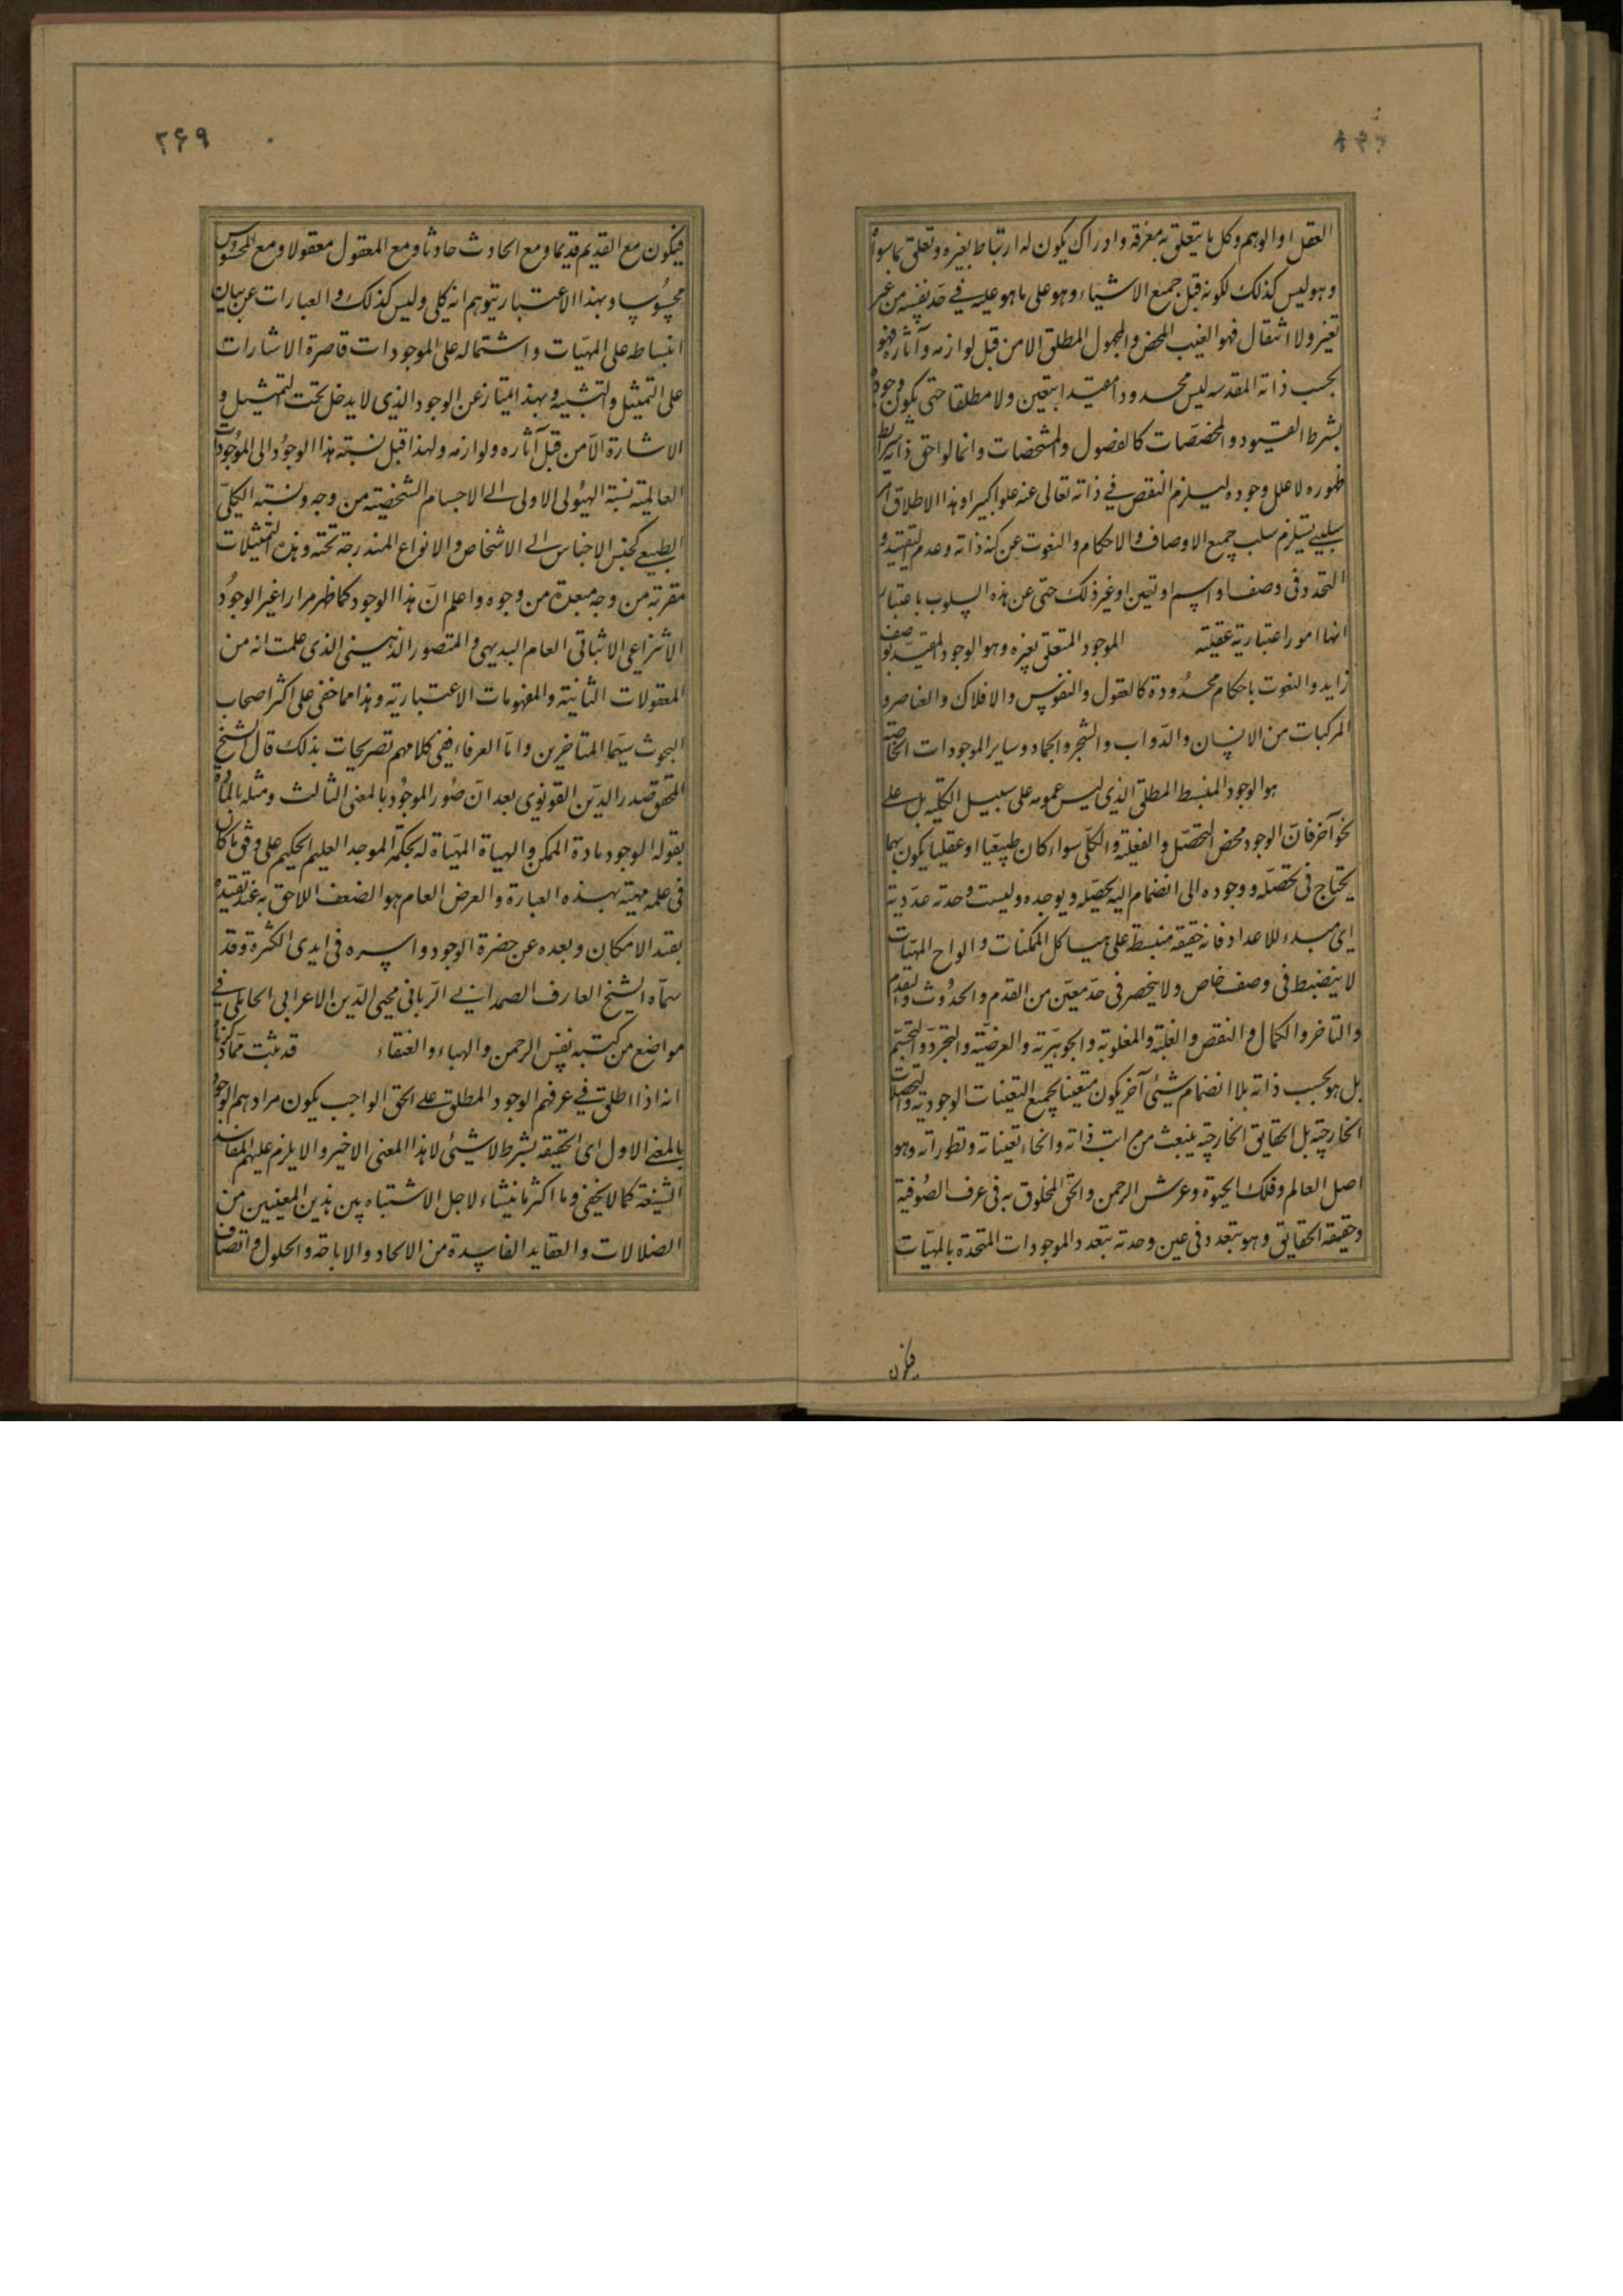 العقل او الوهم وكل ما يتعلق به معرفة وادراك يكون له ارتباط بغيره وتعلق بما سواه
وهو ليس كذلك لكونه قبل جميع الاشياء وهو على ما هو عليه في حد نفسه من غير
تغير ولا انتقال فهو الغيب المحض والمجهول المطلق الا من قبل لوازمه وآثاره فهو
بحسب ذاته المقدسه ليس محدودا مقيدا بتعين ولا مطلقا حتى يكون وجوده
بشرط القيود والمخصصات كالفصول والمشخصات وانما لواحق ذاته شرايط
ظهوره لا علل وجوده ليلزم النقص في ذاته تعالى عنه علوا كبيرا وهذا الاطلاق امر
سلبي يستلزم سلب جميع الاوصاف والاحكام والنعوت عن كنه ذاته وعدم التقييد و
التحدد في وصف او اسم او تعين او غير ذلك حتى عن هذه السلوب باعتبار
انها امور اعتبارية عقلية الموجود المتعلق بغيره وهو الوجود المقيد بوصف
زايد والنعوت باحكام محدودة كالعقول والنفوس والافلاك والعناصر و
المركبات من الانسان والدواب والشجر والجماد وساير الموجودات الخاصة
هو الوجود المنبسط المطلق الذي ليس عمومه على سبيل الكلية بل على
نحو آخر فان الوجود محض التحصل والفعلية والكلي سواء كان طبيعيا او عقليا يكون مبهما
يحتاج في تحصله ووجوده الى انضمام اليه يحصله ويوجده وليست وحدته عددية
اي مبدء للاعداد فانه حقيقة منبسط على هياكل الممكنات والواح المهيات
لا ينضبط في وصف خاص ولا ينحصر في حد معين من القدم والحدوث والتقدم
والتاخر والكمال والنقص والعلية والمعلولية والجوهرية والعرضية والتجرد والتجسم
بل هو بحسب ذاته بلا انضمام شيئ آخر يكون متعينا بجميع التعينات الوجودية والتحصلات
الخارجية بل الحقايق الخارجية ينبعث من مراتب ذاته وانحاء تعيناته وتطوراته وهو
اصل العالم وفلك الحيوة وعرش الرحمن والحق المخلوق به في عرف الصوفية
وحقيقة الحقايق وهو يتعدد في عين وحدته بتعدد الموجودات المتحدة بالمهيات
فيكون
۲۶۹
فيكون مع القديم قديما ومع الحادث حادثا ومع المعقول معقولا ومع المحسوس
محسوسا وبهذا الاعتبار يتوهم انه كلي وليس كذلك والعبارات عن بيان
انبساطه على المهيات واشتماله على الموجودات قاصرة الاشارات
على التمثيل والتشبيه وبهذا يمتاز عن الوجود الذي لا يدخل تحت التمثيل و
الاشارة الا من قبل آثاره ولوازمه ولهذا قيل نسبته هذا الوجود الى الموجودات
العالمية نسبة الهيولى الاولى الى الاجسام الشخصية من وجه ونسبة الكلي
الطبيعي كجنس الاجناس الى الاشخاص والانواع المندرجة تحته وهذه التمثيلات
مقربة من وجه مبعدة من وجوه واعلم ان هذا الوجود كما ظهر مرارا غير الوجود
الانتزاعي الاثباتي العام البديهي والمتصور الذهني الذي علمت انه من
المعقولات الثانية والمفهومات الاعتبارية وهذا مما خفي على اكثر اصحاب
البحوث سيما المتاخرين واما العرفاء ففي كلامهم تصريحات بذلك قال الشيخ
المحقق صدر الدين القونوي بعد ان صور الموجود بالمعنى الثالث ومثله بالمادة
بقوله الوجود مادة الممكن والهياة المهياة له بحكمة الموجد العليم الحكيم على وفق ما كان
في علمه مهيئة بهذه العبارة والعرض العام هو الضعف اللاحق به عند تقيده
بقيد الامكان وبعده عن حضرة الوجود واسره في ايدي الكثرة وقد
سماه الشيخ العارف الصمداني الرباني محيى الدين الاعرابي الحاتمي في
مواضع من كتبه نفس الرحمن والهباء والعنقاء قد ثبت مما ذكرنا
انه اذا اطلق في عرفهم الوجود المطلق على الحق الواجب يكون مرادهم الوجود
بالمعنى الاول اي الحقيقة بشرط لا شيئ لا هذا المعنى الاخير والا يلزم عليهم المفاسد
الشنيعة كما لا يخفى وما اكثر ما ينشاء لاجل الاشتباه بين هذين المعنيين من
الضلالات والعقايد الفاسدة من الالحاد والاباحة والحلول واتصاف